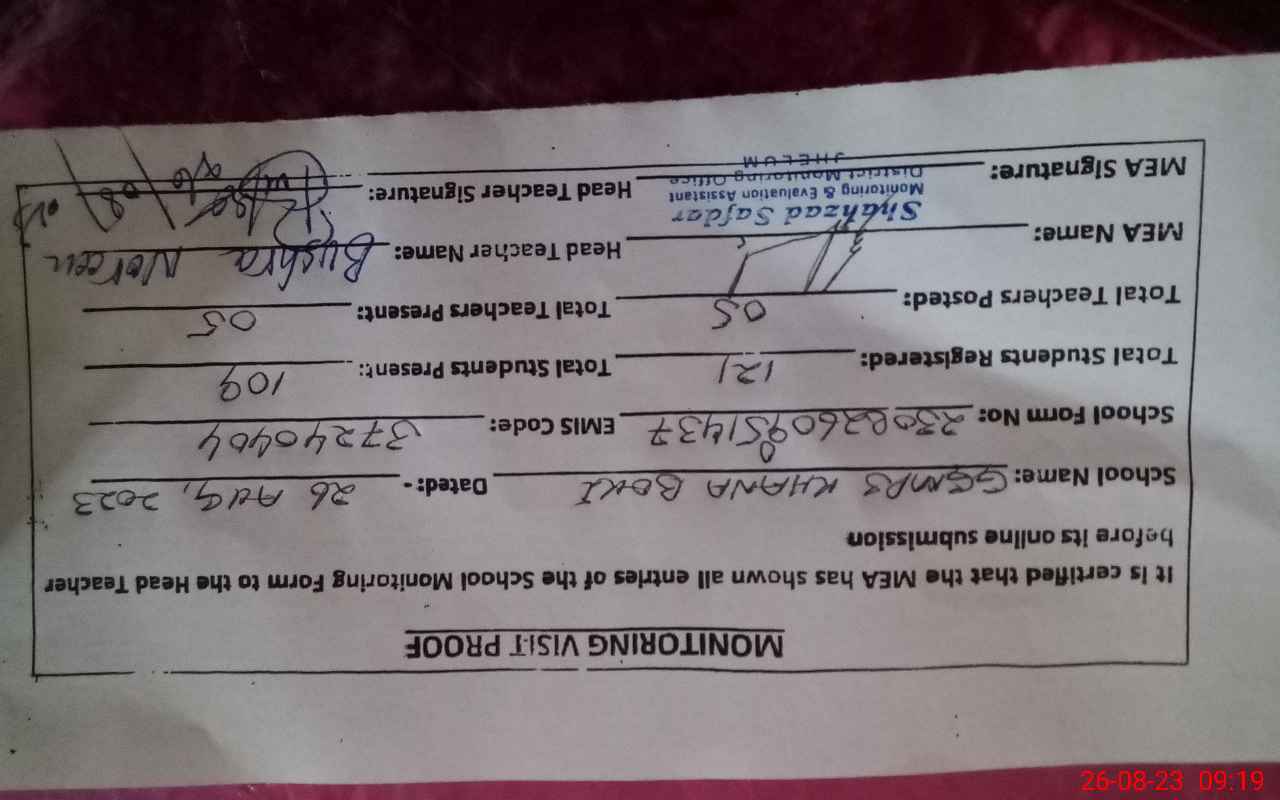 MONITORING VISIT PROOF
It is certified that the MEA has shown all entries of the School Monitoring Form to the Head Teacher
before its online submission
School Name: GGMPS KHANA BOKI Dated:- 26 AUG, 2023
School Form No: EMIS Code: 37240404
Total Students Registered: 121 Total Students Present: 109
Total Teachers Posted: 05 Total Teachers Present: 05
MEA Name: Head Teacher Name: Bushra Noreen
Shahzad Safdar
Monitoring & Evaluation Assistant
District Monitoring Office
JHELUM
MEA Signature: Head Teacher Signature:
26-08-23 09:19